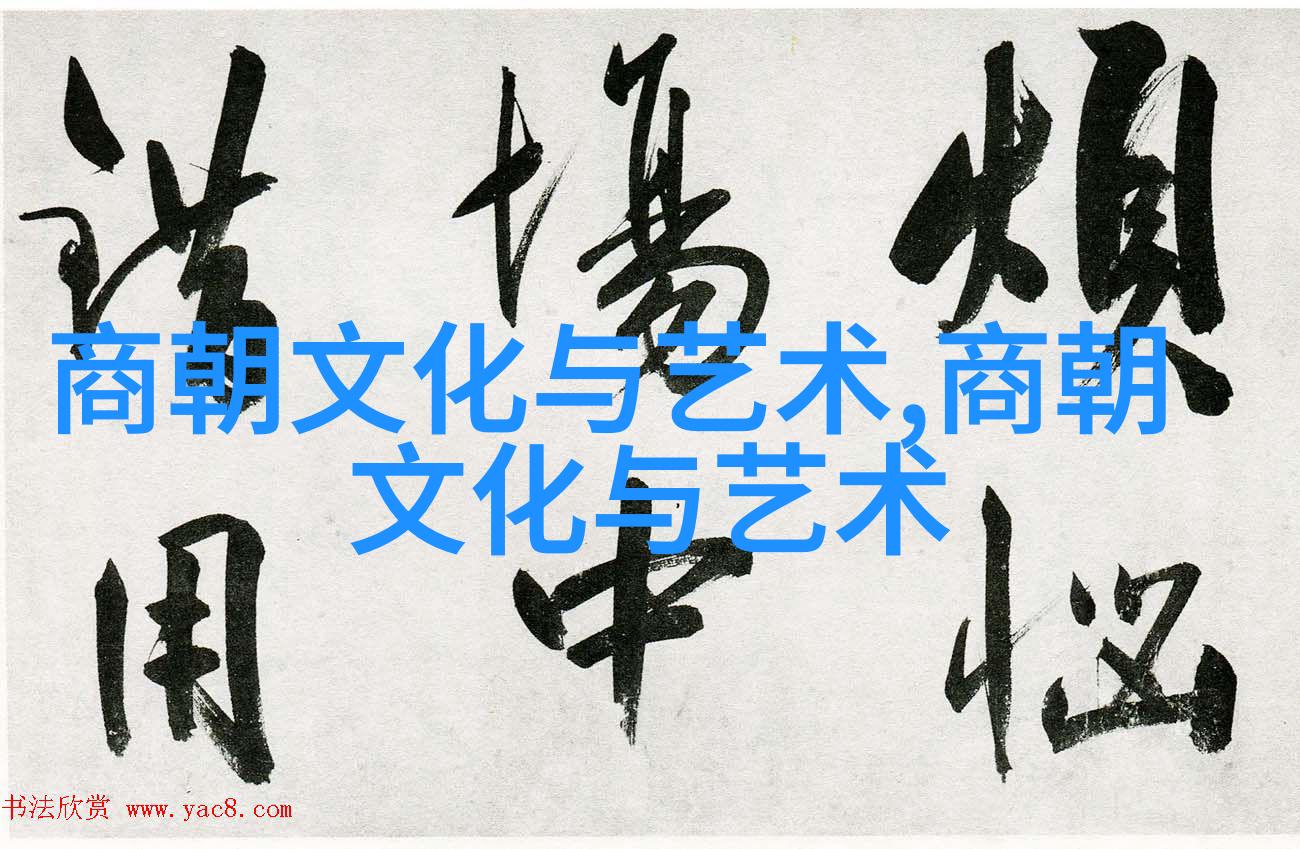 烦恼
场中
错用
商朝文化与艺术,商朝
文化与艺术
书法欣赏 www.yac8.com